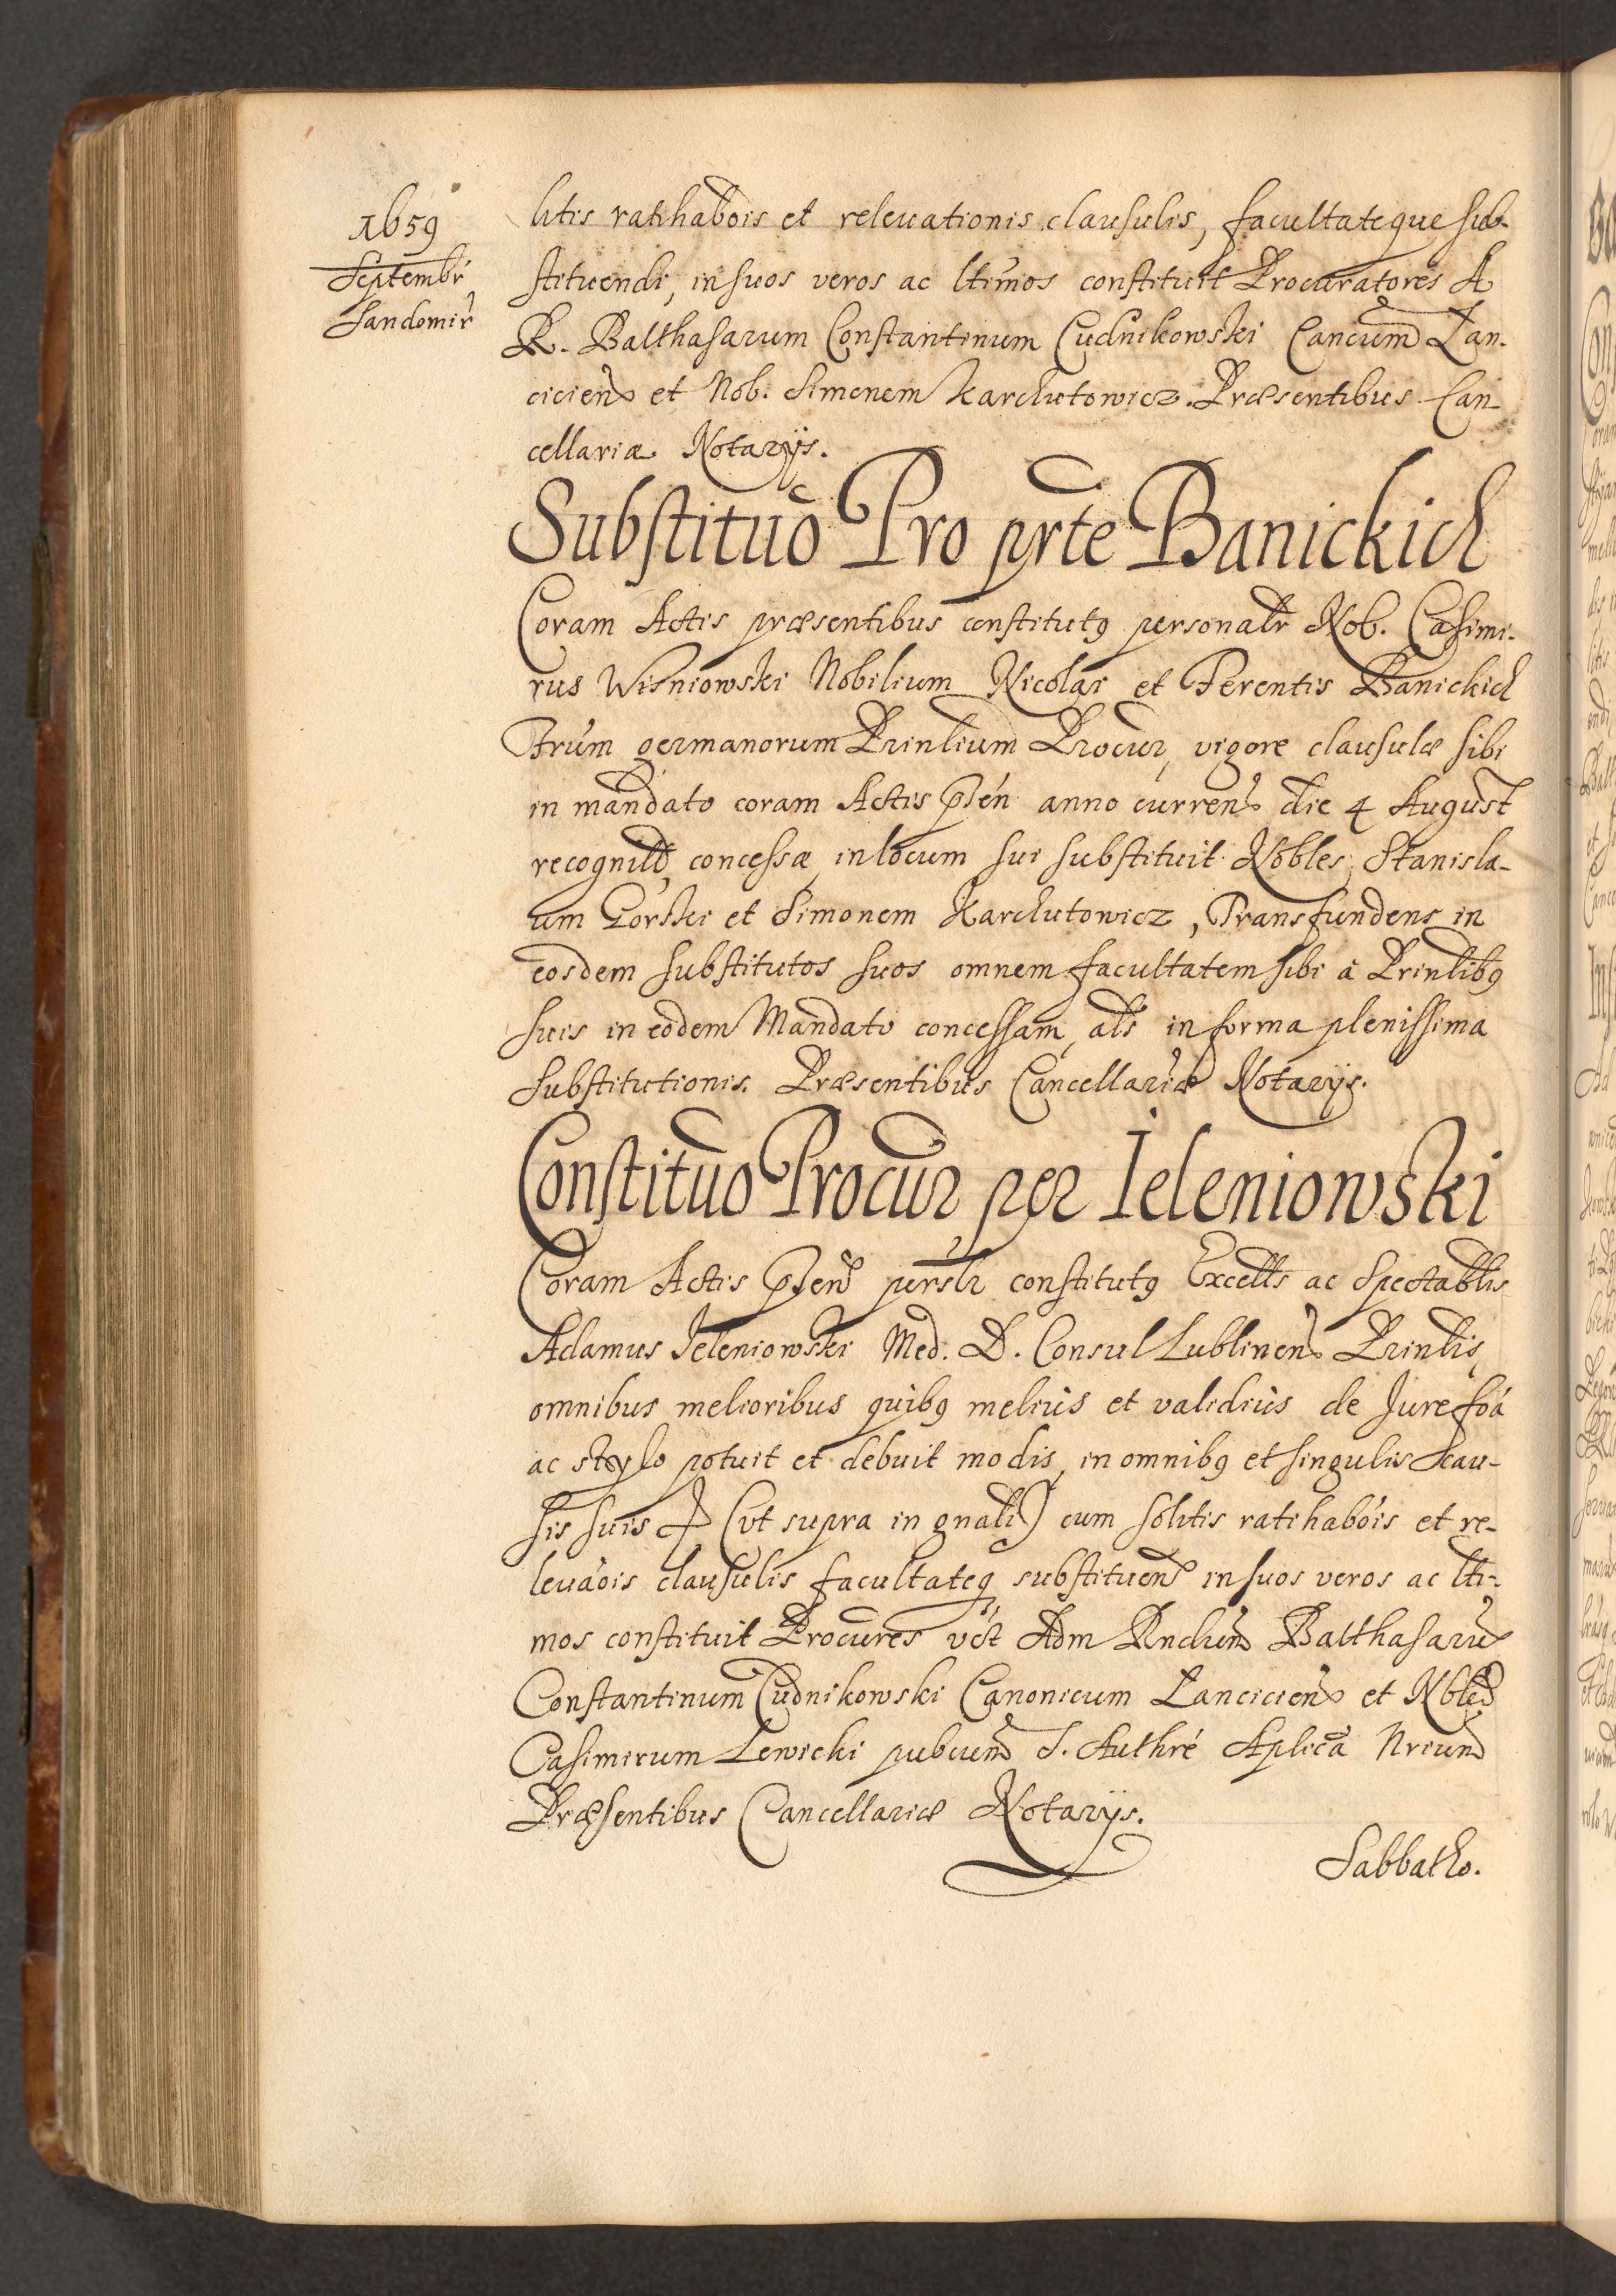 1659
Septembr
Sandomir
litis ratihabōis et relevationis clausulis, facultateque sub-
stituendi, in suos veros ac ltimos constituit Procuratores A
R. Balthasarum Constantinum Cudnikowski Cancum Lan-
cicien et Nob. Simonem Karchutowicz. Præsentibus Can-
cellariæ Notarÿs.
Substituō Pro prte Banickich
Coram Actis præsentibus constitutꝯ personalr Nob. Casimi-
rus Wisniowski Nobilium Nicolai et Ferentis Banickich
Frūm germanorum Prinlium Procur, vigore clausulæ sibi
in mandato coram Actis pñen anno curren die 4 August
recognito, concessæ, in locum sui substituit Nobles Stanisla-
um Gorski et Simonem Karchutowicz, Transfundens in
eosdem substitutos suos omnem facultatem sibi à Prinlibꝯ
suis in eodem Mandato concessam, als in forma plenissima
substitutionis. Præsentibus Cancellariæ Notarijs.
Constituō Procur per Ieleniowski
Coram Actis pñen perslr constitutꝯ Excells ac Spectablis
Adamus Jeleniowski Med. D. Consul Lublinen Prinlis,
omnibus melioribus quibꝯ melius et validius de Jure foā
ac stylo potuit et debuit modis, in omnibꝯ et singulis Cau-
sis suis (vt supra in gnali) cum solitis ratihabōis et re-
levāois clausulis facultateq substituen in suos veros ac lti-
mos constituit Procures vct Adm Rndum Balthasarum
Constantinum Cudnikowski Canonicum Lancicien et Nblem
Casimirum Lewicki pubcum S. Authre Aplica Nrium
Præsentibus Cancellariæ Notarijs.
Sabbatho.